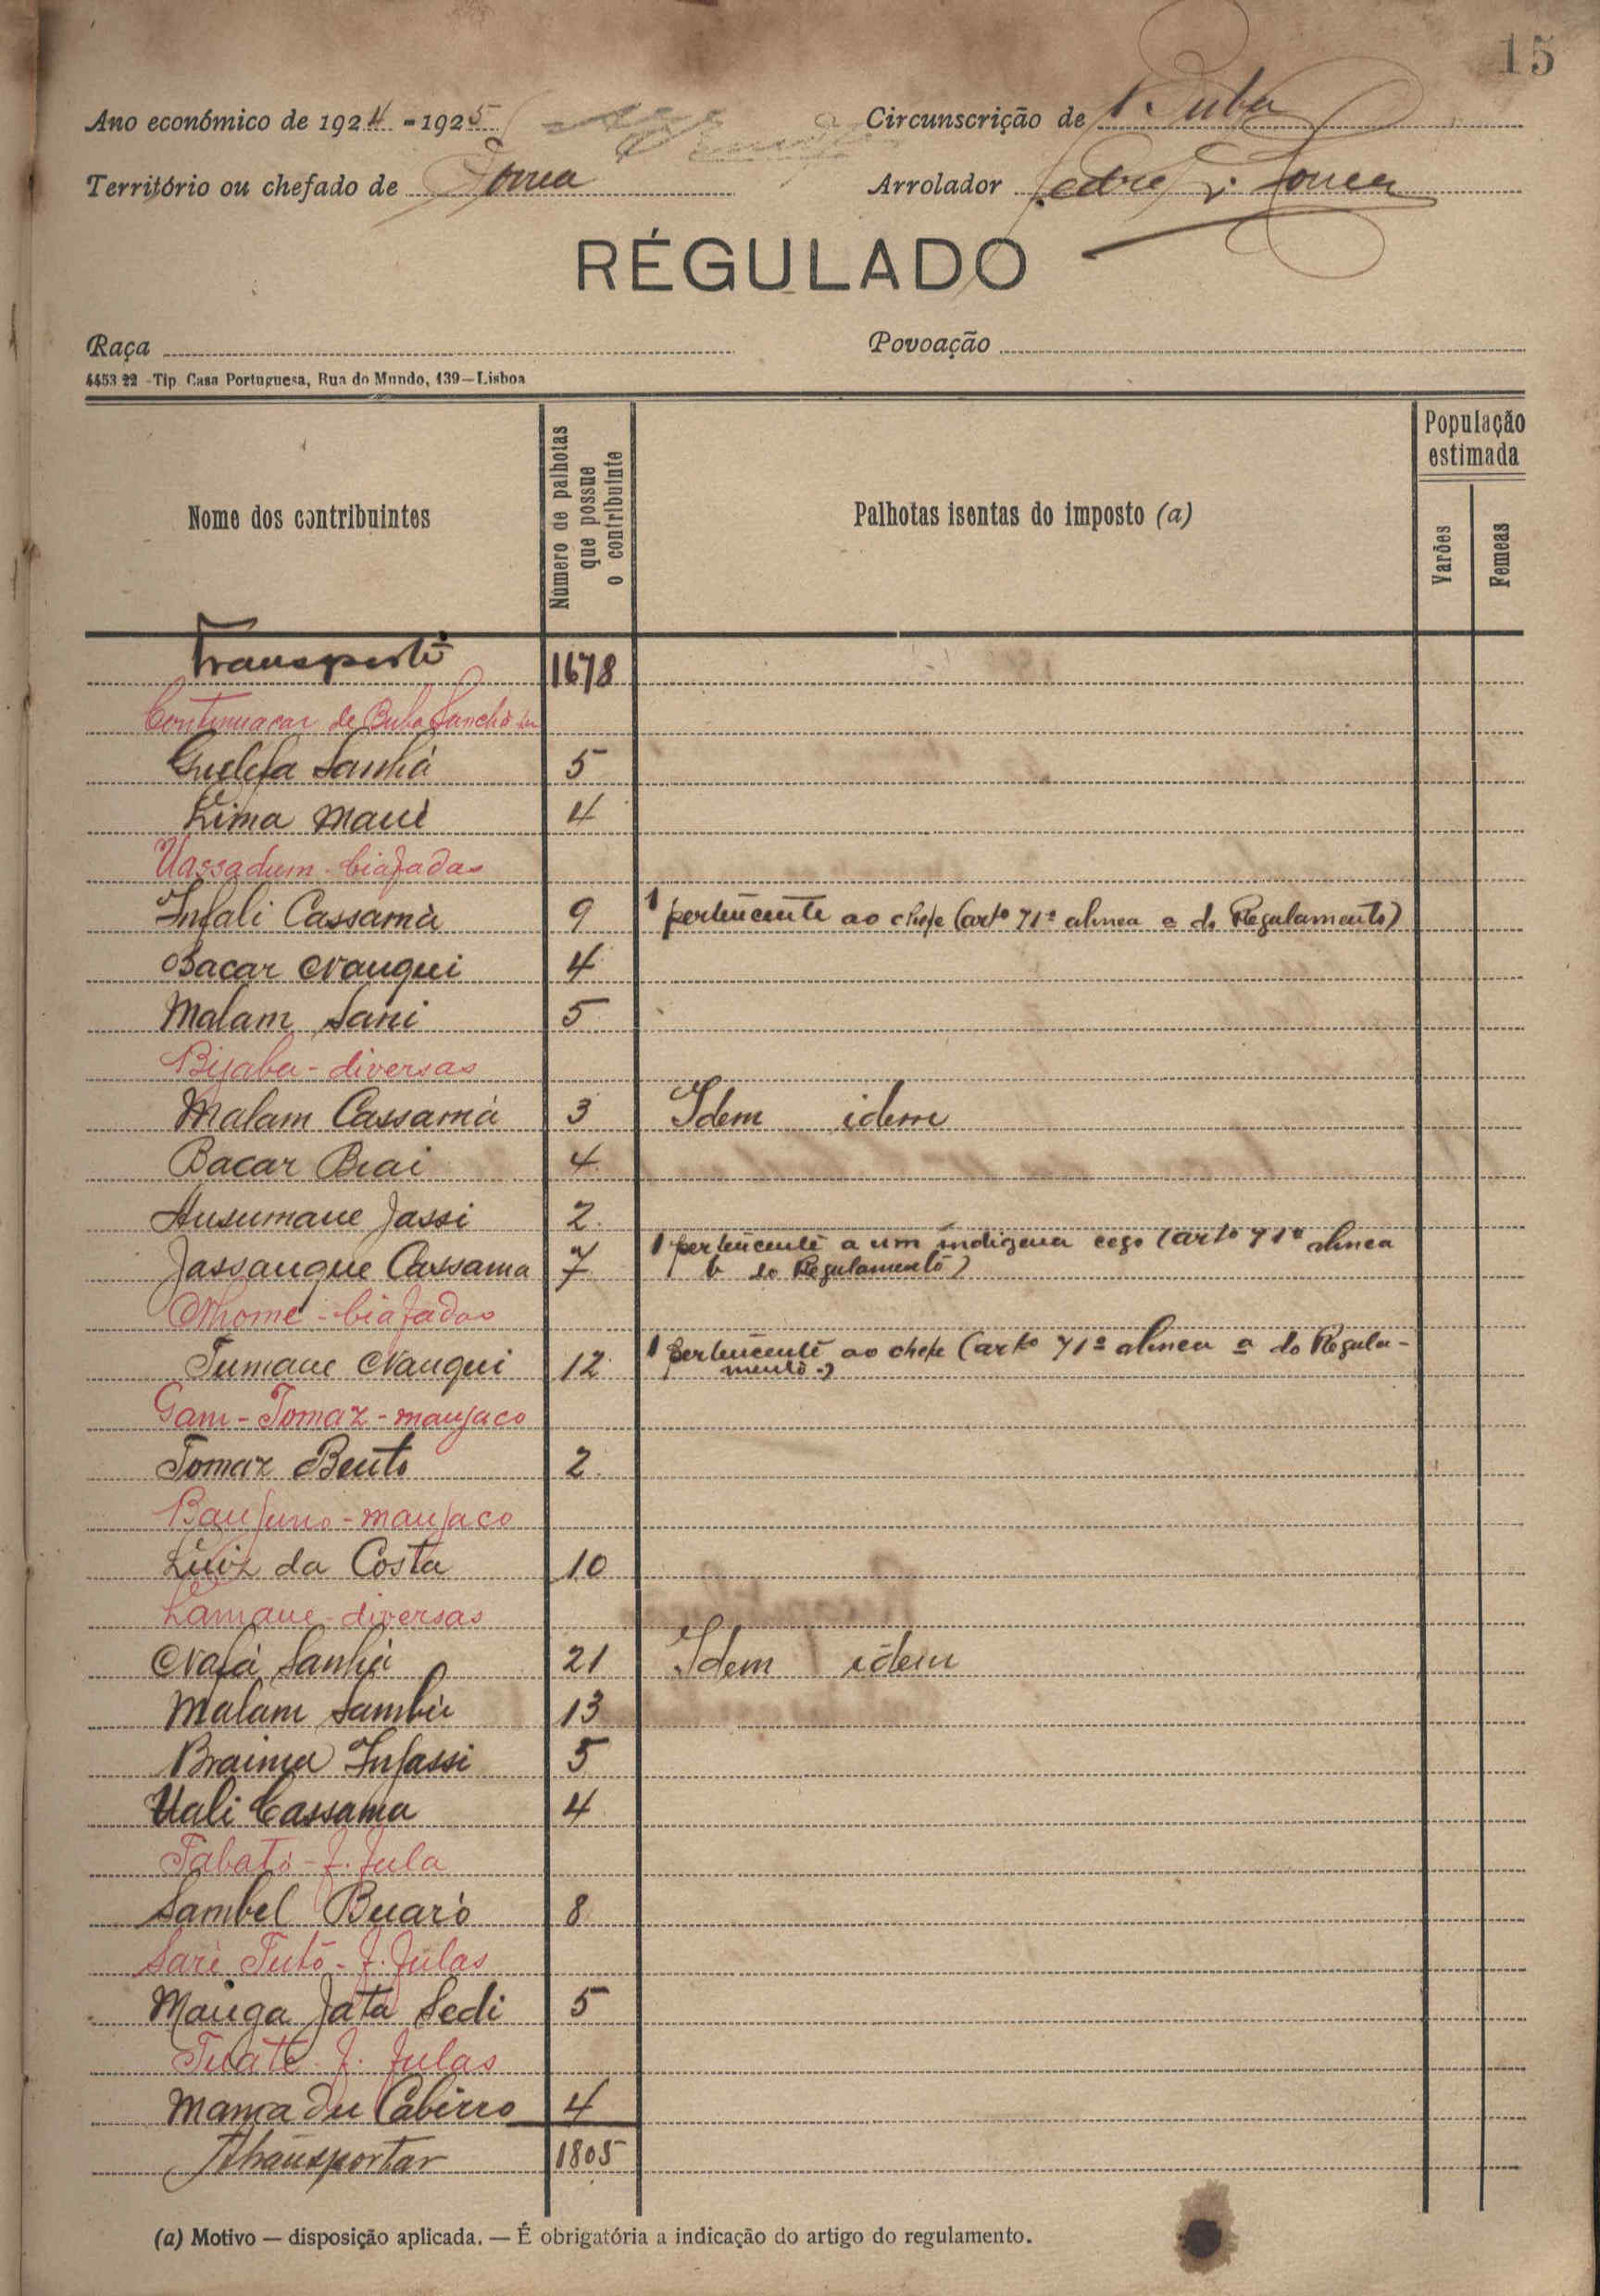 15
Ano económico de 1924-1925
Circunscrição de Buba
Território ou chefado de
Arrolador
RÉGULADO
Raça
Povoação
4453 22 -Tip. Casa Portuguesa, Rua do Mundo, 139—Lisboa
Nome dos contribuintes
Número de palhotas que possue o contribuinte
Palhotas isentas do imposto (a)
População estimada
Varões
Femeas
Transporte 1678
Continuacar de Buba
Guelefa Sanhá 5
Lima Mané 4
Uassadum - biafadas
Infali Cassamá 9 1 pertencente ao chefe (artº 71º alinea a do Regulamento)
Bacar Nanqui 4
Malam Sani 5
Bijaba - diversas
Malam Cassamá 3 Idem idem
Bacar Biai 4
Ansumane Jassi 2
1 pertencente a um indigena cego (artº 71º alinea
Jassanque Cassama 7 b do Regulamento)
Nhome - biafadas
Tumane Nanqui 12 1 pertencente ao chefe (artº 71º alinea a do Regula-
mento.)
Gam - Tomaz - manjaco
Tomaz Bento 2
manjaco
Luiz da Costa 10
Lamane - diversas
Nafá Sanhá 21 Idem idem
Malam Sambú 13
Braima Infassi 5
Uali Cassama 4
Tabató - f. fula
Sambel Buaró 8
Saré Tutó - f. fulas
Manga Jata Sedi 5
f. fulas
Mamadu Cabirro 4
Transportar 1805
(a) Motivo — disposição aplicada. — É obrigatória a indicação do artigo do regulamento.